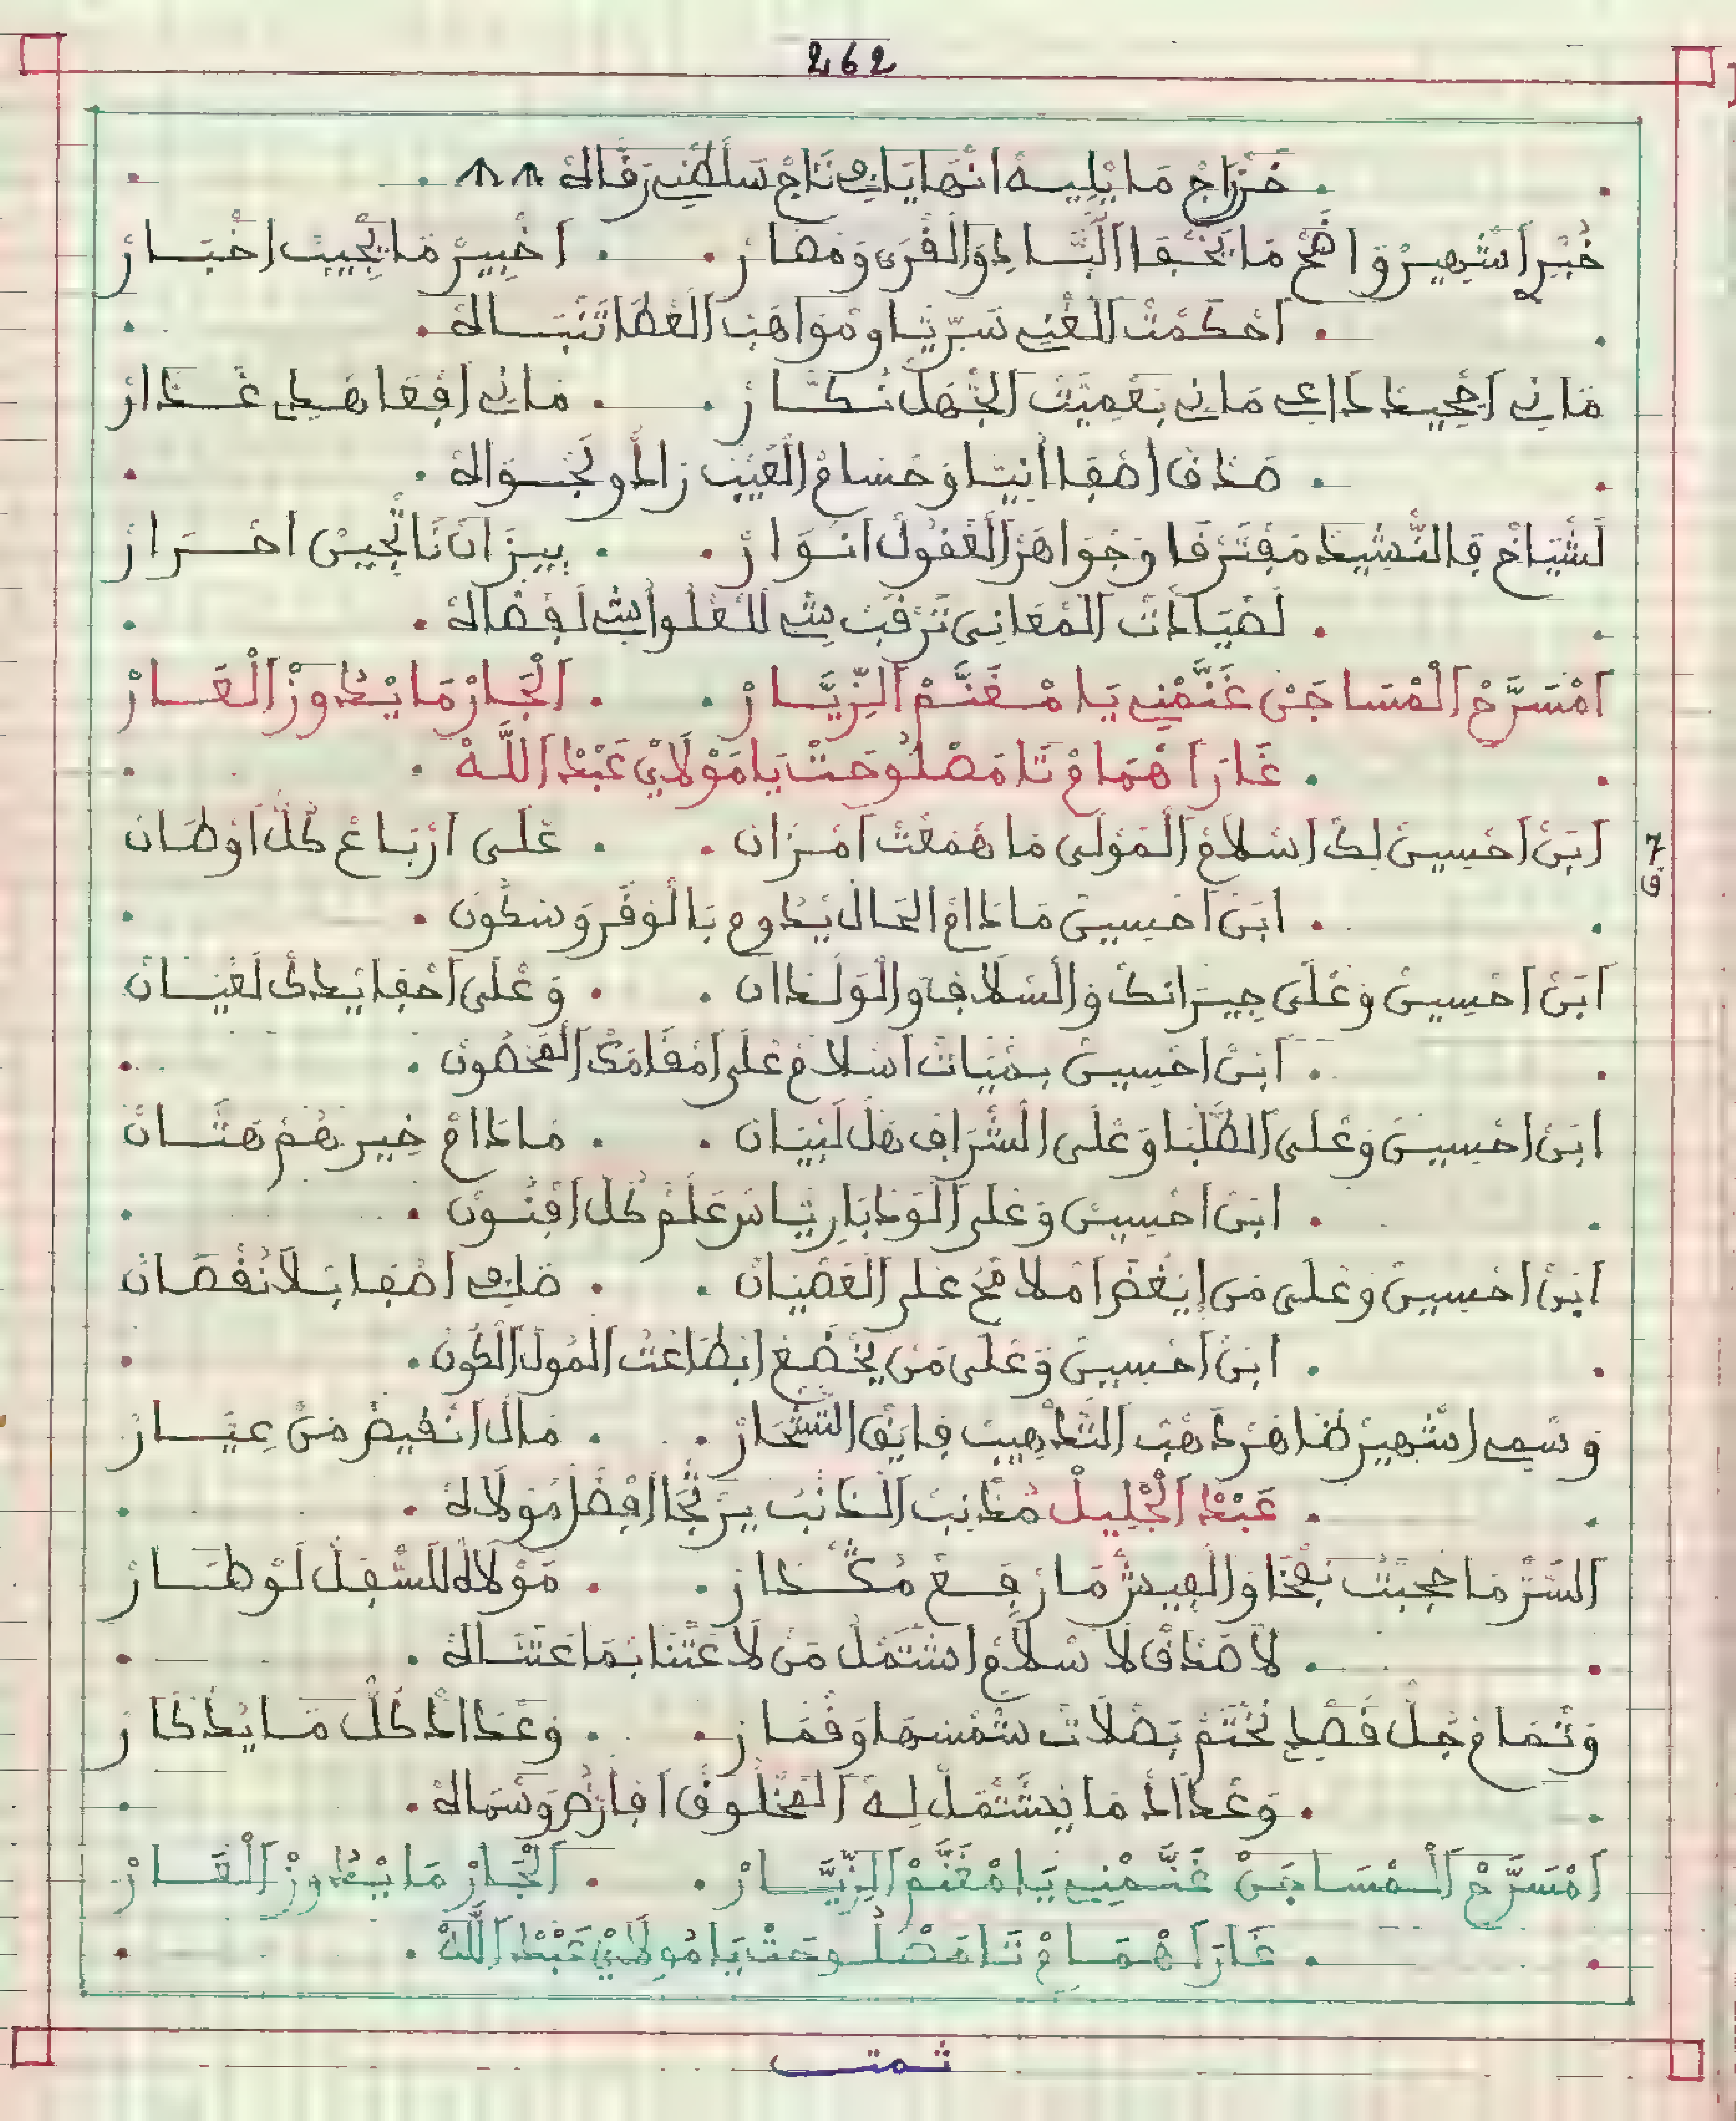 262
خَرَّاجْ مَا يْلِيهْ انْهَايَا فِي تَاجْ سَلْطْنِي رَقَّاهْ
خُبْرِ اَشْهِيرْ وَاضَحْ مَا يَخْفَا الْبَّادِ وَالْقْرَى وَمْصَارْ . اخْبِيرْ مَا يْجِيبْ اخْبَارْ
احْكَمْتْ الْغْنِي سَرِّيْيَا وَمْوَاهَبْ الْعْطَا تَنْبَاهْ
مَانِي اجْحِيدْ دَاعِي مَانِي بَعْمِيتْ الْجْهَلْ نَكَّارْ . مَانِي افْعَا هَيْدِي غَدَّارْ
صَدْقْ اصْفَا انِيَّا وَحْسَامْ الْغَيْبْ زَادُو لَجْوَاهْ
لَشْيَاخْ فِالنْشِيدْ مَفْتَرْقَا وَجْوَاهَرْ الْعْقُولْ انْوَارْ . بِيزَانْ نَا تْجِيسْ احْرَارْ
لَصْيَادَاتْ الْمْعَانِي تَرْقَبْ شِي لَلْعْلُو اشِي لَفْضَاهْ
اَمْسَرَّحْ اَلْمْسَاجَنْ غَنَّمْنِي يَا مْغَنَّمْ اَلزِّيَّارْ . اَلْجَارْ مَا يْدُوزْ اَلْعَارْ
غَارَا هْمَامْ تَامَصْلُوحَتْ يَا مَوْلَايْ عَبْدْ اَللَّهْ
7
ق
ابَنْ احْسِينْ لِكْ اسْلَامْ الْمَوْلَى مَا هَمْعَتْ امْزَانْ . عْلَى ارْبَاعْ كُلْ اوْطَانْ
ابَنْ احْسِينْ مَادَامْ الْحَالْ يْدُومْ بَالْوَقْرْ وَسْكُونْ
ابَنْ احْسِينْ وَعْلَى جِيرَانَكْ وَالسْلَافْ وَالْوَلْدَانْ . وَعْلَى احْفَا يَدَكْ لَعْيَانْ
ابَنْ احْسِينْ بَمْيَاتْ اسْلَامْ عْلَى امْقَامَكْ الْمَحْصُونْ
ابَنْ احْسِينْ وَعْلَى الطَّلْبَا وَعْلَى الشّْرَافْ هَلْ لَبْيَانْ . مَادَامْ خِيرْهُمْ هَتَّانْ
ابَنْ احْسِينْ وَعْلَى الْوَدْبَا رِيَّاسْ عَلْمْ كُلْ افْنُونْ
ابَنْ احْسِينْ وَعْلَى مَنْ ايْغُضْ امْلَامْحُ عْلَى الْعَصْيَانْ . صَافِي اصْفَا بَلَا نُقْصَانْ
ابَنْ احْسِينْ وَعْلَى مَنْ يَخْضَعْ ابْطَاعْتْ الْمُولْ الْكُونْ
وَسْمِي اشْهِيرْ ظَاهَرْ دَهْبْ التّْدْهِيبْ فَايَقْ التّْشْحَارْ . مَالْ انْقِيضْ مَنْ عِيَّارْ
عَبْدْ اَلْجْلِيلْ مُدْنِبْ الدَّنْبْ يَرْجَا افْضَلْ مُولَاهْ
السَّرْ مَا جْبَتْ نَفْحَا وَالْفِيشْ مَا رْفَعْ مُكْدَارْ . مَوْلَاهْ لَلسّْفَلْ لَوْطَارْ
لَا صَدْقْ لَا سْلَامْ اشْتَمْلْ مَنْ لَا عْتْنَا بْمَا عَتْنَاهْ
وَتْمَامْ جُلْ قَصْدِي نَخْتَمْ بَصْلَاتْ شَمْسْهَا وَقْمَارْ . وَعْدَادْ كُلْ مَا يُدْكَارْ
وَعْدَادْ مَا يَشْتَمْلْ لِهْ الْمَخْلُوقْ افْارْضْ وَسْمَاهْ
اَمْسَرَّحْ اَلْمْسَاجَنْ غَنَّمْنِي يَا مْغَنَّمْ اَلزِّيَّارْ . اَلْجَارْ مَا يْدُوزْ اَلْعَارْ
غَارَا هْمَامْ تَامَصْلُوحَتْ يَا مُولَايْ عَبْدْ اَللَّهْ
تمت